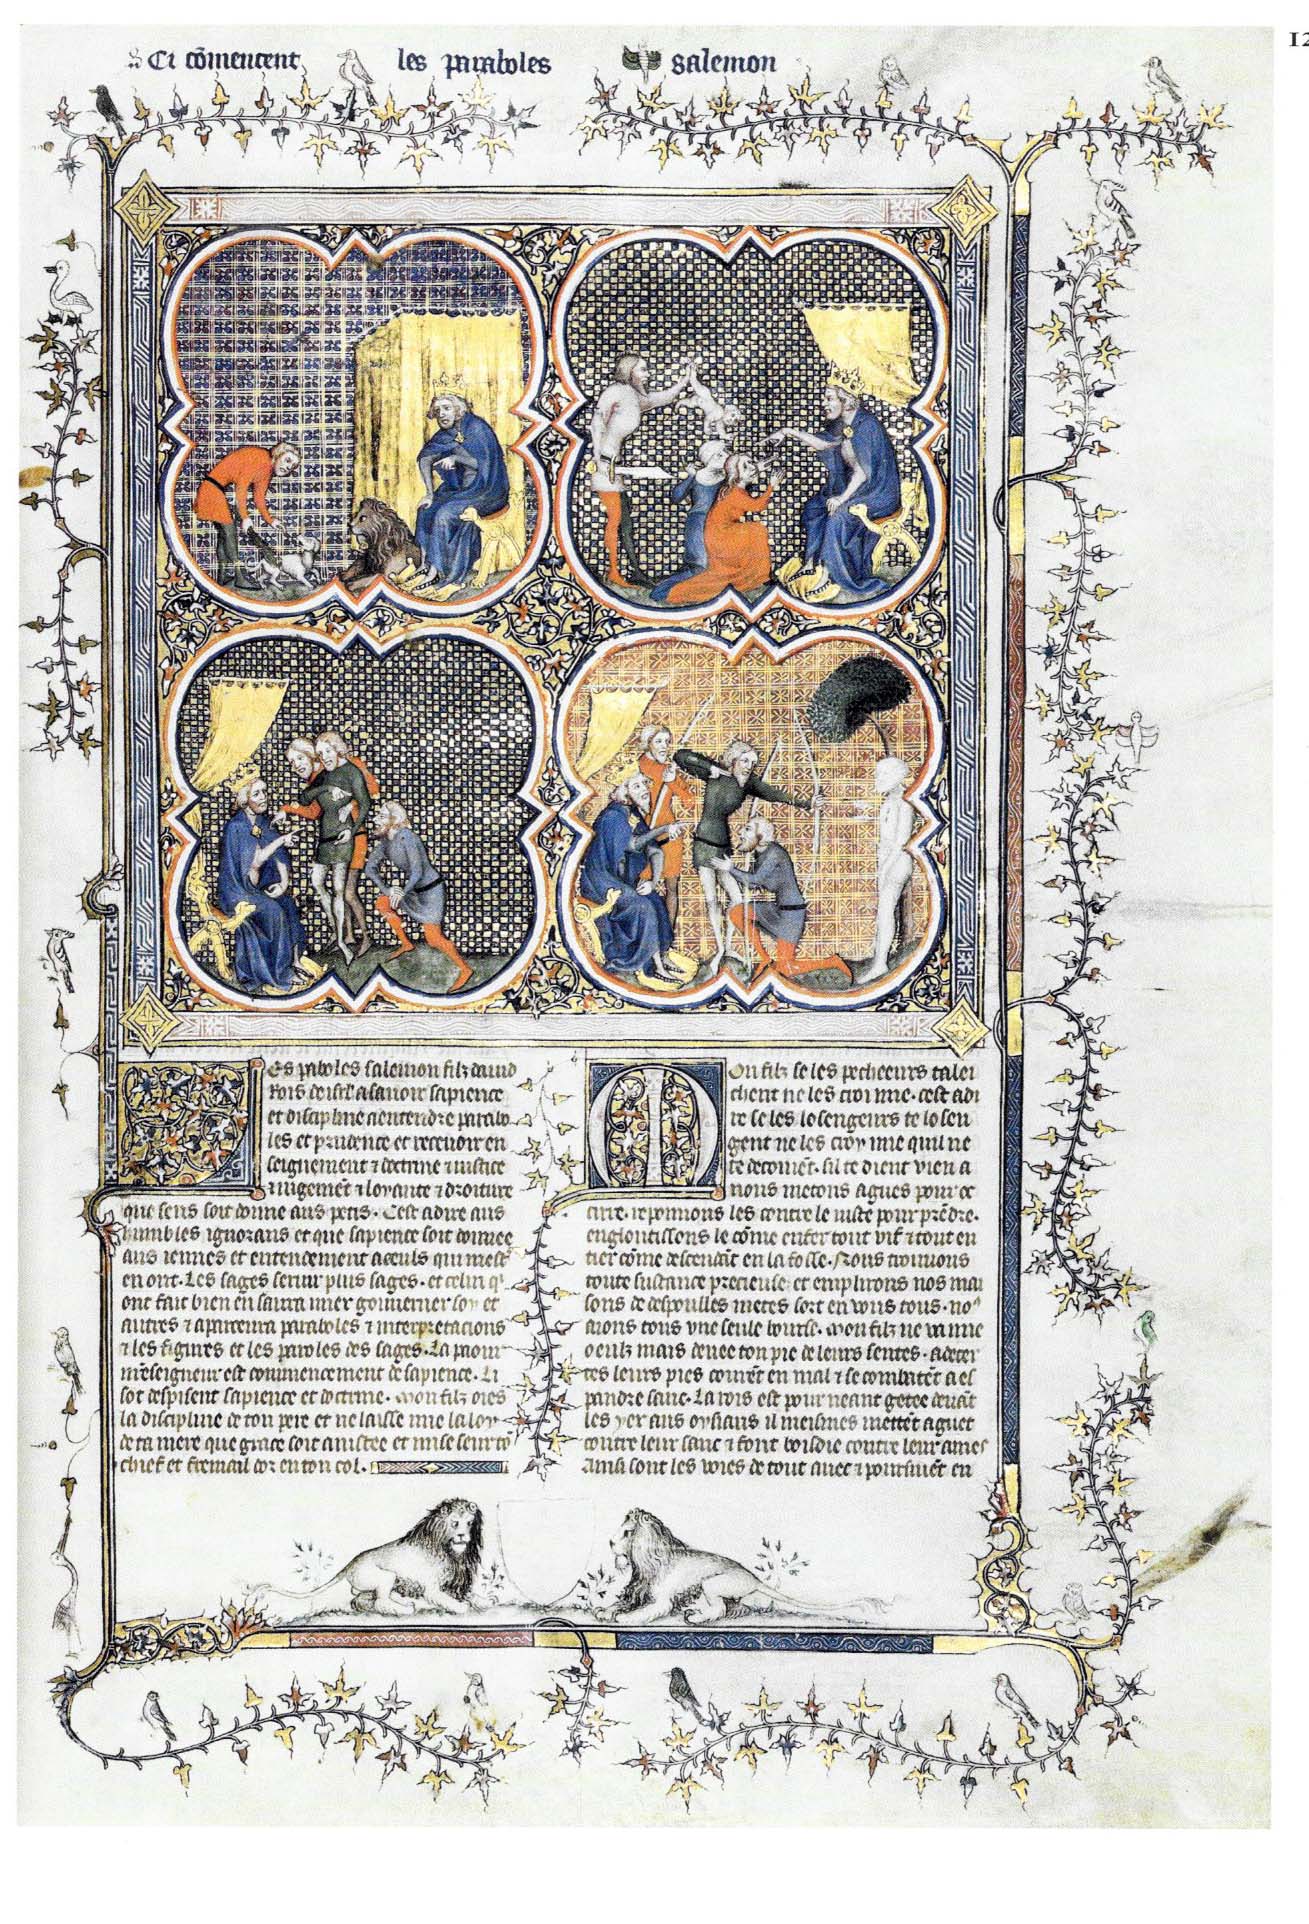 Ci cõmencent les paraboles salemon
12
Les paboles salemon filz dauid
rois disrl a sauoir sapience
et discipline a entendre parabo
les et prudence et receuoir en
seignement ⁊ doctrine ⁊ iustice
⁊ iugemẽt ⁊ loyaute ⁊ droiture
que sens soit donne aus petis. Cest adire aus
humbles ignorans et que sapience soit donnee
aus iennes et entendement a ceuls qui mest
en ont. Les sages seront plus sages. et celui q̾
ont fait bien en saura mier gouuerner soy et
autres ⁊ aparceura paraboles ⁊ interpretacions
⁊ les figures et les paroles des sages. La paour
nr̃eseigneur est commencement de sapience. Li
sot despisent sapience et doctrine. Mon filz oies
la discipline de ton pere et ne laisse mie la loy
de ta mere que grace soit aiustee et mise seur tõ
chief et fermail dor en ton col.
Mon filz se les pecheeurs talei
chent ne les croi mie. cest adi
re se les losengeurs te losen
gent ne les croy mie quil ne
te decoiuẽt. sil te dient vien a
nous metons agues pour oc
cirre. reponnons les contre le iuste pour prẽdre.
engloutissons le cõme enfer tout vif ⁊ tout en
tier cõme descendãt en la fosse. Nous trouuons
toute sustance precieuse et emplirons nos mai
sons de despoulles metes sort en vous tous. no⁹
aions tous vne seule bourse. Mon filz ne va mie
o eulz mais deuee ton pie de leurs sentes. a decer
tes leurs pies courẽt en mal ⁊ se combatẽt a es
pandre sanc. La rois est pour neant getee deuãt
les yex aus oysiaus il meismes mettẽt aguet
contre leur sanc ⁊ font boisdie contre leur ames
Ainsi sont les voies de tout auer ⁊ poursuiẽt en